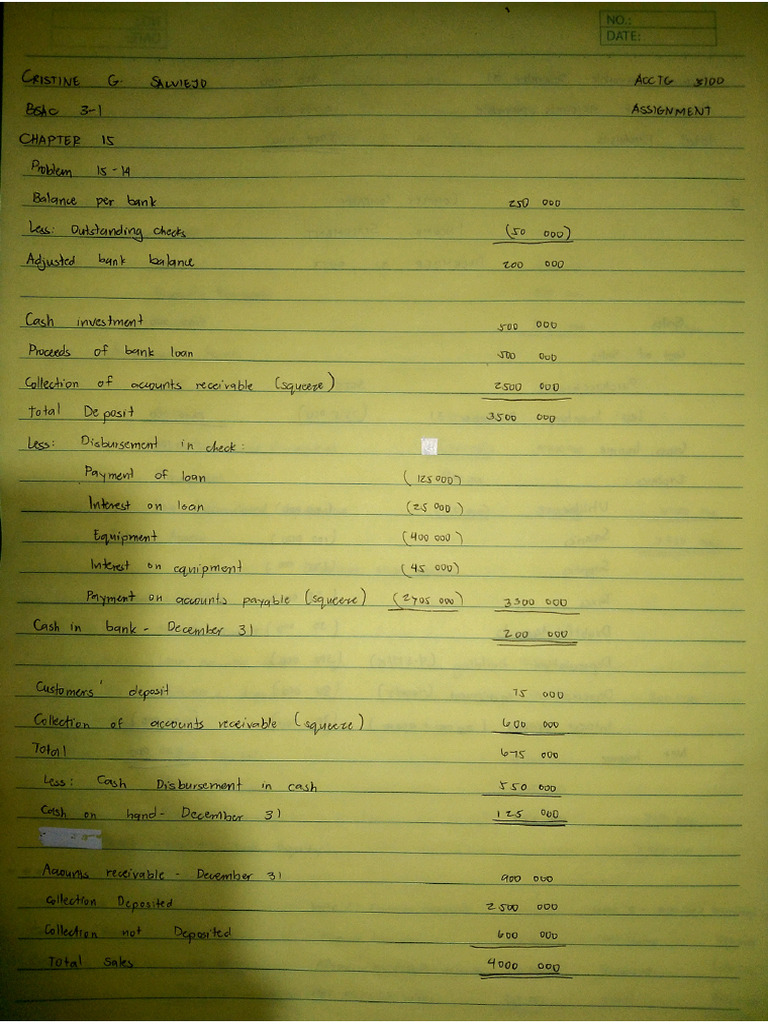 NO.:
DATE:
CRISTINE G. SALVIEJO ACCTG 3100
BSAC 3-1 ASSIGNMENT
CHAPTER 15
Problem 15-14
Balance per bank 250 000
Less: Outstanding checks (50 000)
Adjusted bank balance 200 000
Cash investment 500 000
Proceeds of bank loan 500 000
Collection of accounts receivable (squeeze) 2500 000
Total Deposit 3500 000
Less: Disbursement in check:
Payment of loan (125000)
Interest on loan (25 000)
Equipment (400 000)
Interest on equipment (45 000)
Payment on accounts payable (squeeze) (2705 000) 3300 000
Cash in bank - December 31 200 000
Customers' deposit 75 000
Collection of accounts receivable (squeeze) 600 000
Total 675 000
Less: Cash Disbursement in cash 550 000
Cash on hand - December 31 125 000
Accounts receivable - December 31 900 000
Collection Deposited 2500 000
Collection not Deposited 600 000
Total Sales 4000 000